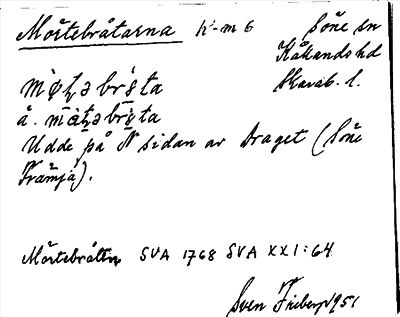 Mörtebråtarna k-m 6 Söne sn
Kållands hd
Skarab. l.
å.
Udde på N sidan av Draget (Söne
Främja).
Mörtebråttn SVA 1768 SVA XXI:64
Sven Friberg 1951